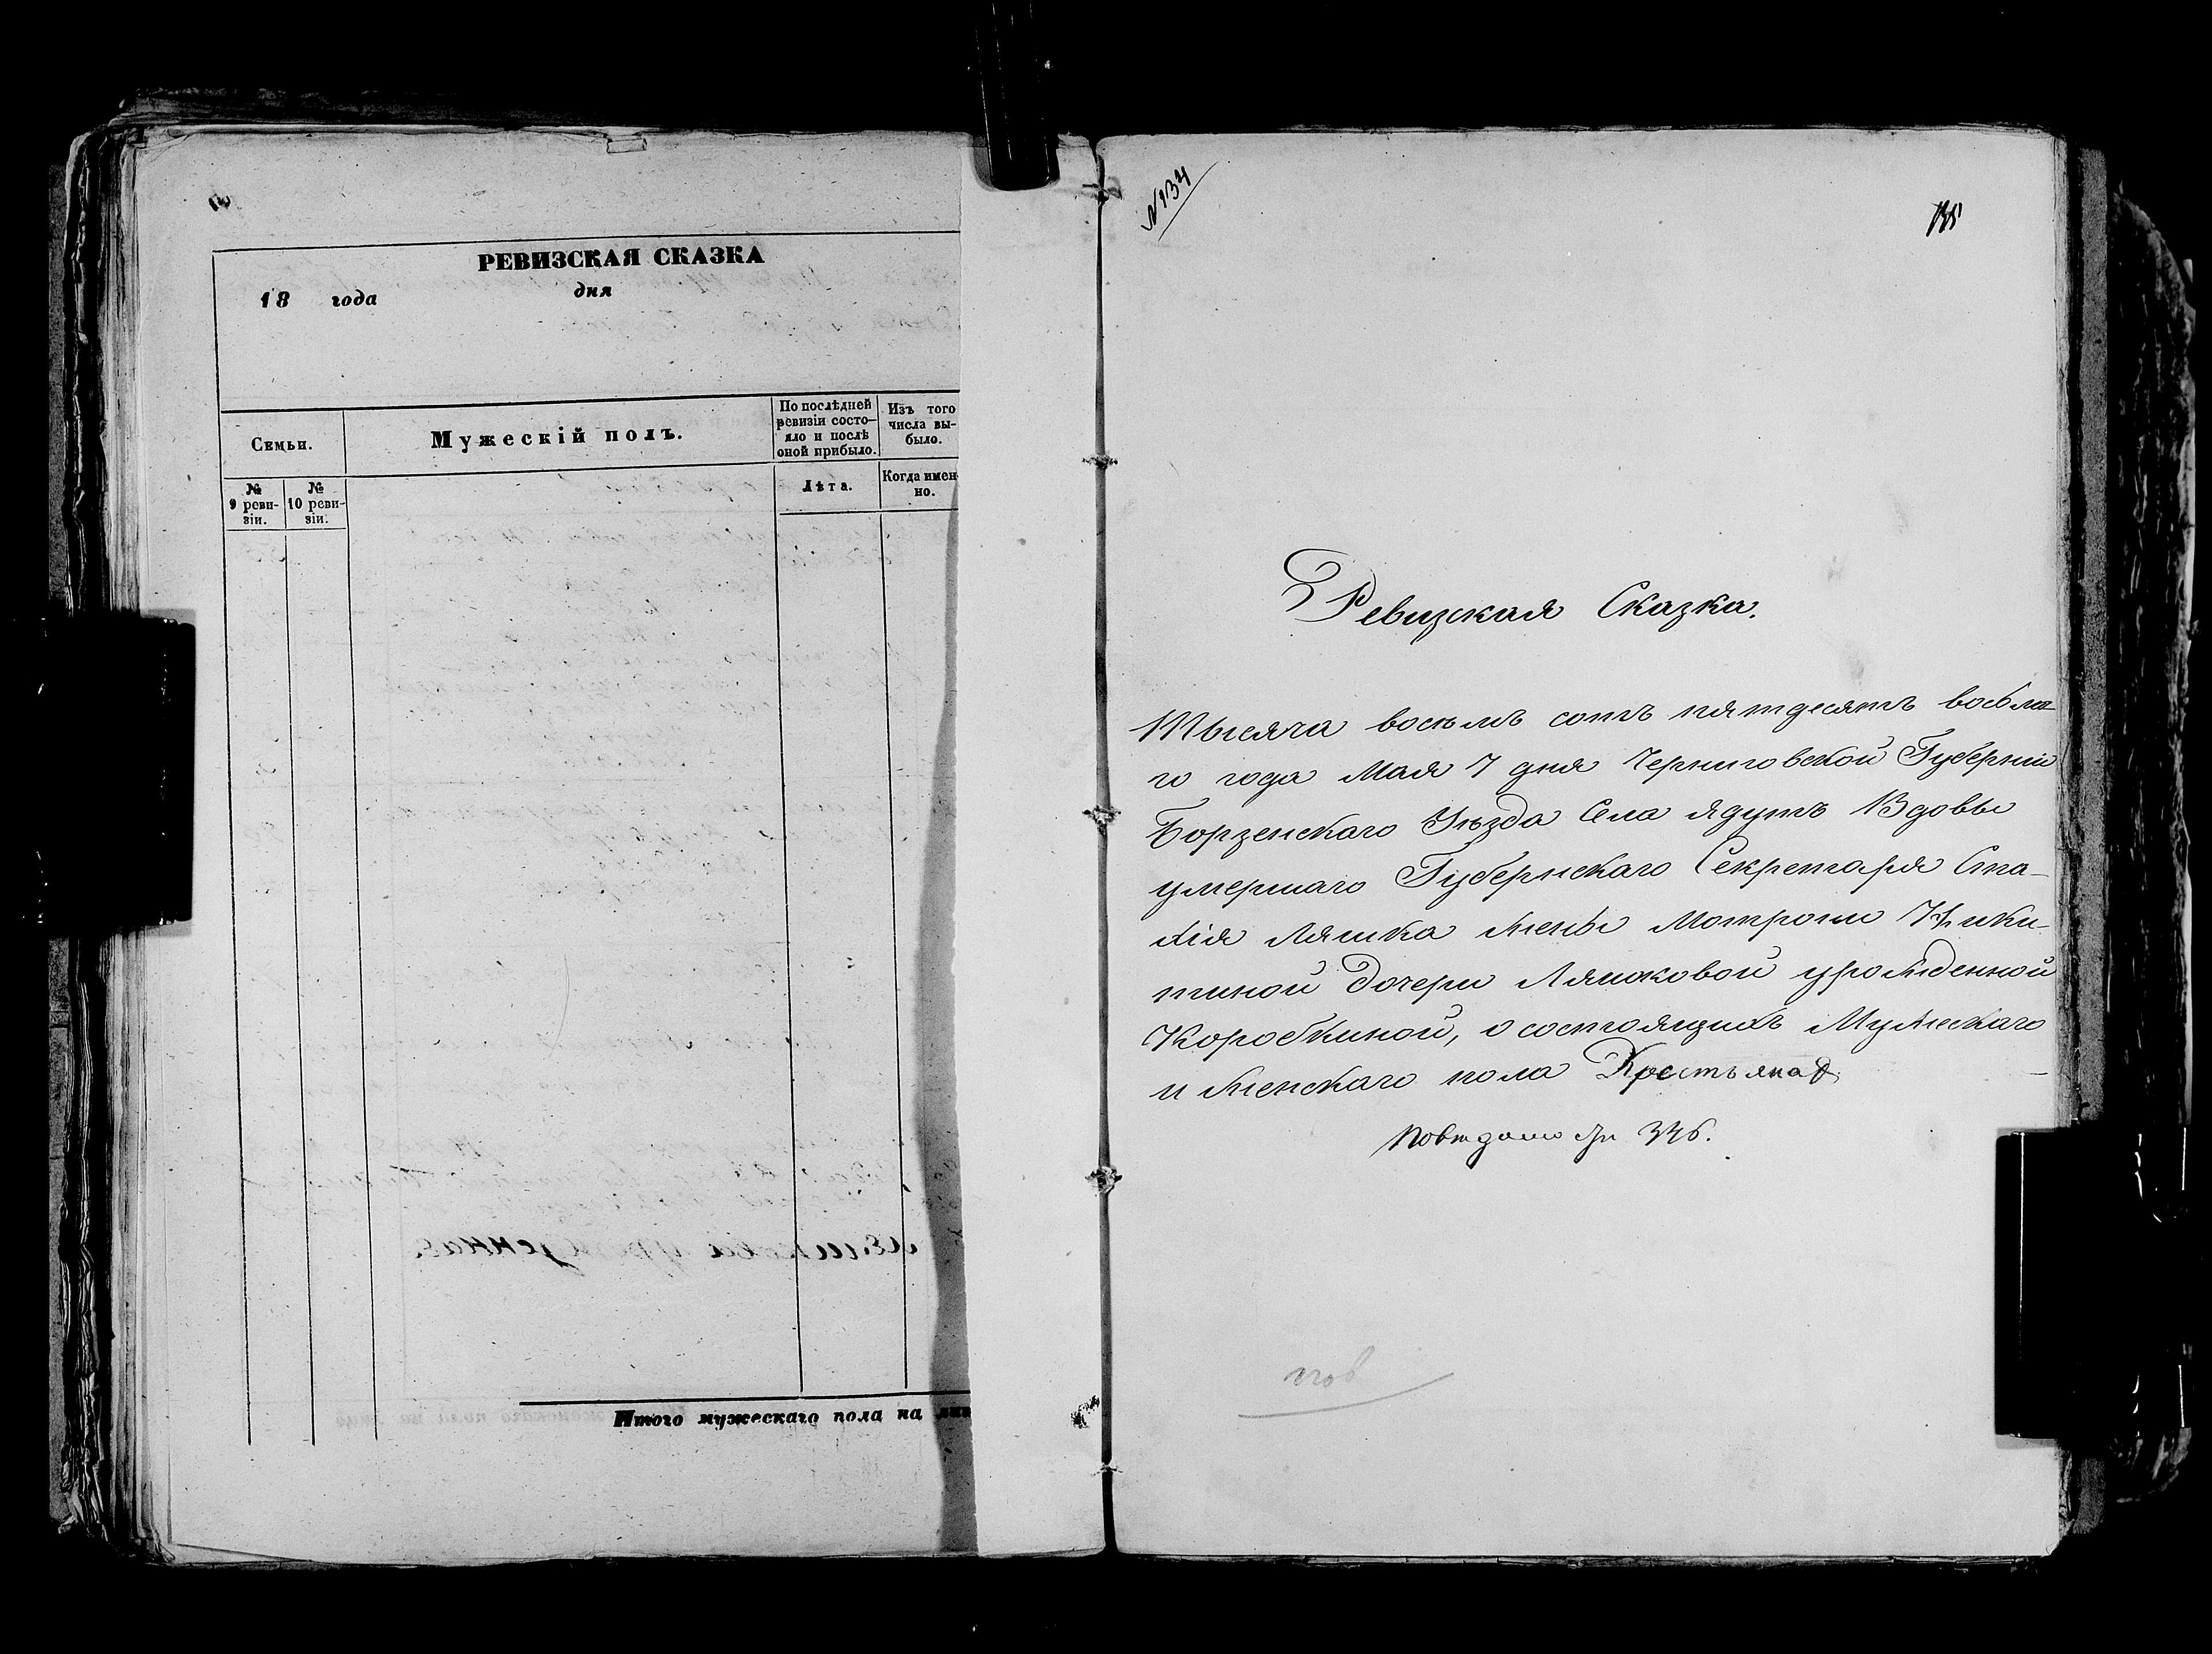 РЕВИЗСКАЯ СКАЗКА
18 года дня
Семьи.
Мужескій полъ.
По послѣдней ревизіи состо-
яло и послѣ
оной прибыло.
Изъ того
числа вы-
было.
№
9 реви-
зіи.
№
10 реви-
зіи.
Лѣта.
Когда имен
но.
Итого мужескаго пола на
№134
135
Ревизская Сказка.
Тысяча восемь сотъ пятдесятъ восьма-
го года Мая 7 дня Черниговской Губерніи
Борзенскаго Уѣзда Села Ядутъ Вдовы
умершаго Губернскаго Секретаря Ста-
хія Ляшка жены Мотрони Ники-
тиной дочери Ляшковой урожденной
Коробкиной, о состоящихъ Мужескаго
и женскаго пола Крестьянах